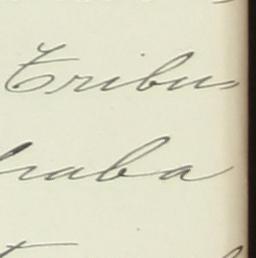 Tribu-
raba